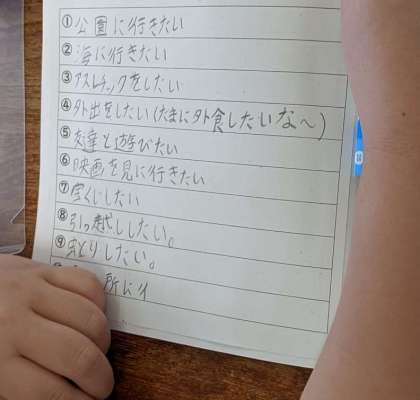 ①公園に行きたい
②海に行きたい
③アスレチックをしたい
④外出をしたい(たまに外食したいな〜)
⑤友達と遊びたい
⑥映画を見に行きたい
⑦宝くじしたい
⑧引っ越ししたい。
⑨虫とりしたい。
所に行